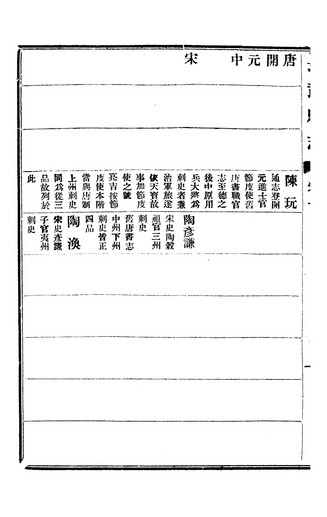 唐開元中
宋
陳玩
通志登開
元進士官
節度使舊
唐書職官
志至德之
後中原用
兵大將爲
刺史者兼
治軍旅遂
依天寶故
事加節度
使之號
亮吉按節
度使本階
當與唐制
上州刺史
同爲從三
品故列於
此
陶彥謙
宋史陶穀
祖官三州
刺史
舊唐書志
中州下州
刺史皆正
四品
陶渙
宋史彥謙
子官夷州
刺史